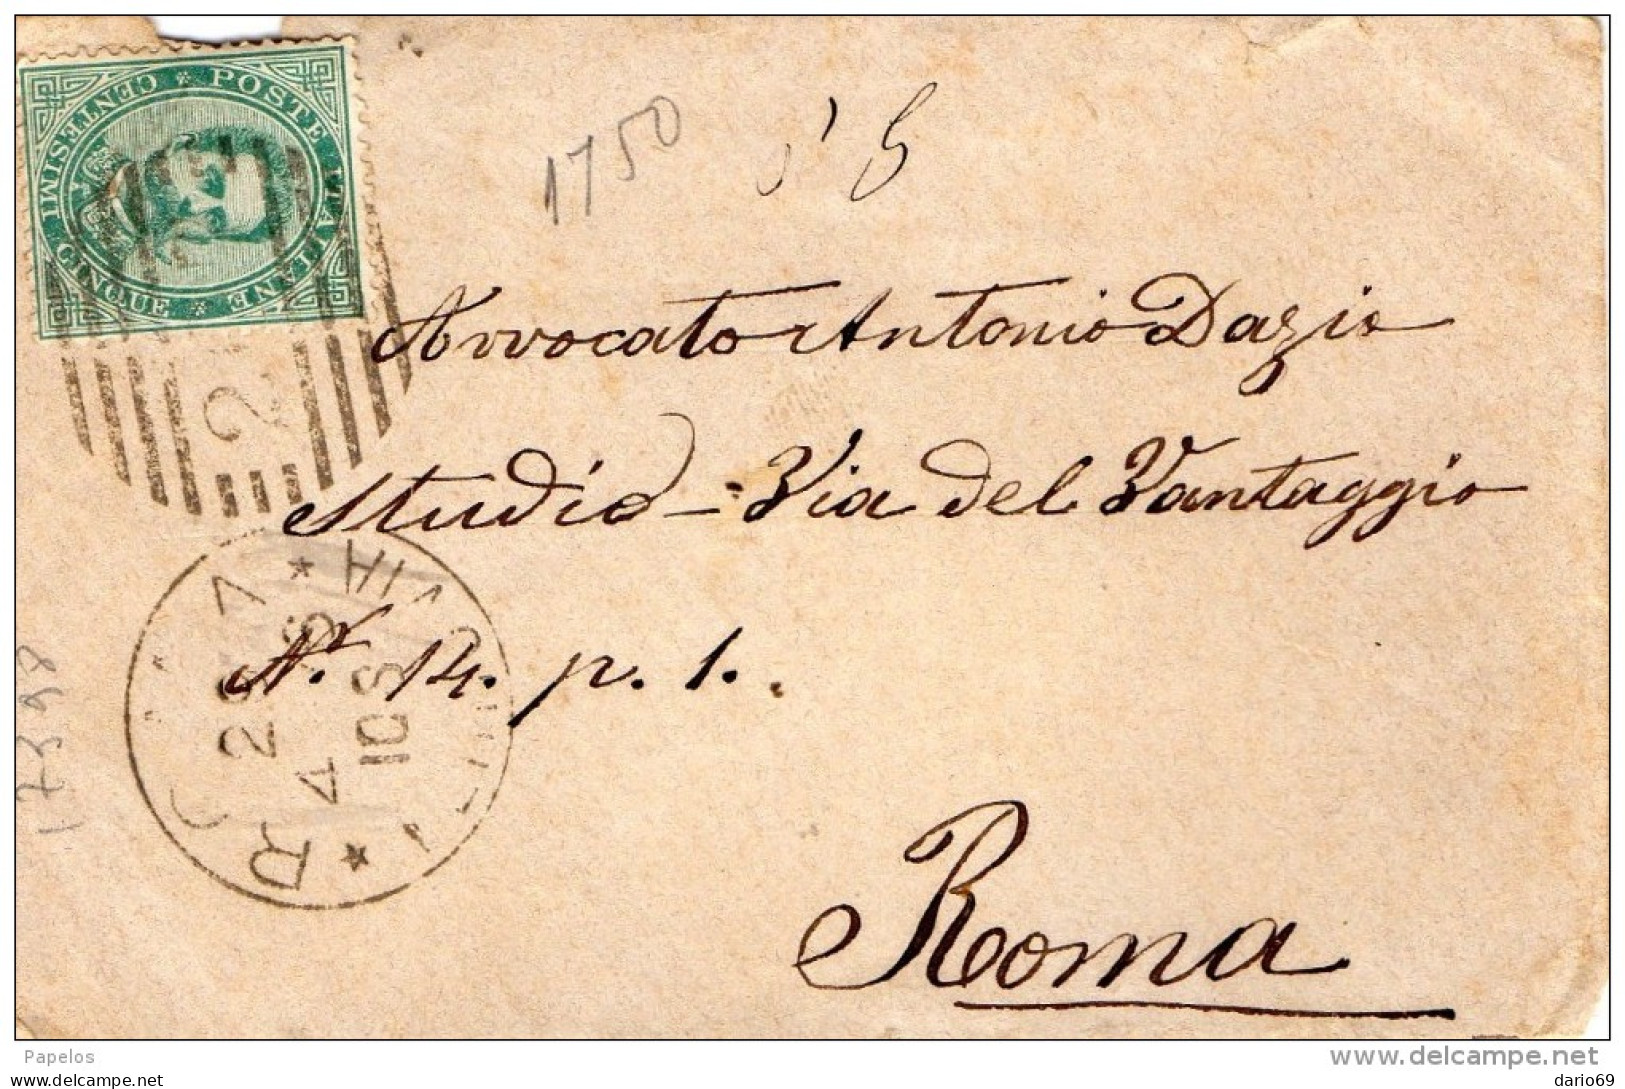 POSTE ITALIANE
CENTESIMI CINQUE
1750
2
Avvocato Antonio Dazio
Studio - Via del Vantaggio
Nº 14. p. 1.
Roma
4
10 S
Papelos
www.delcampe.net
dario69